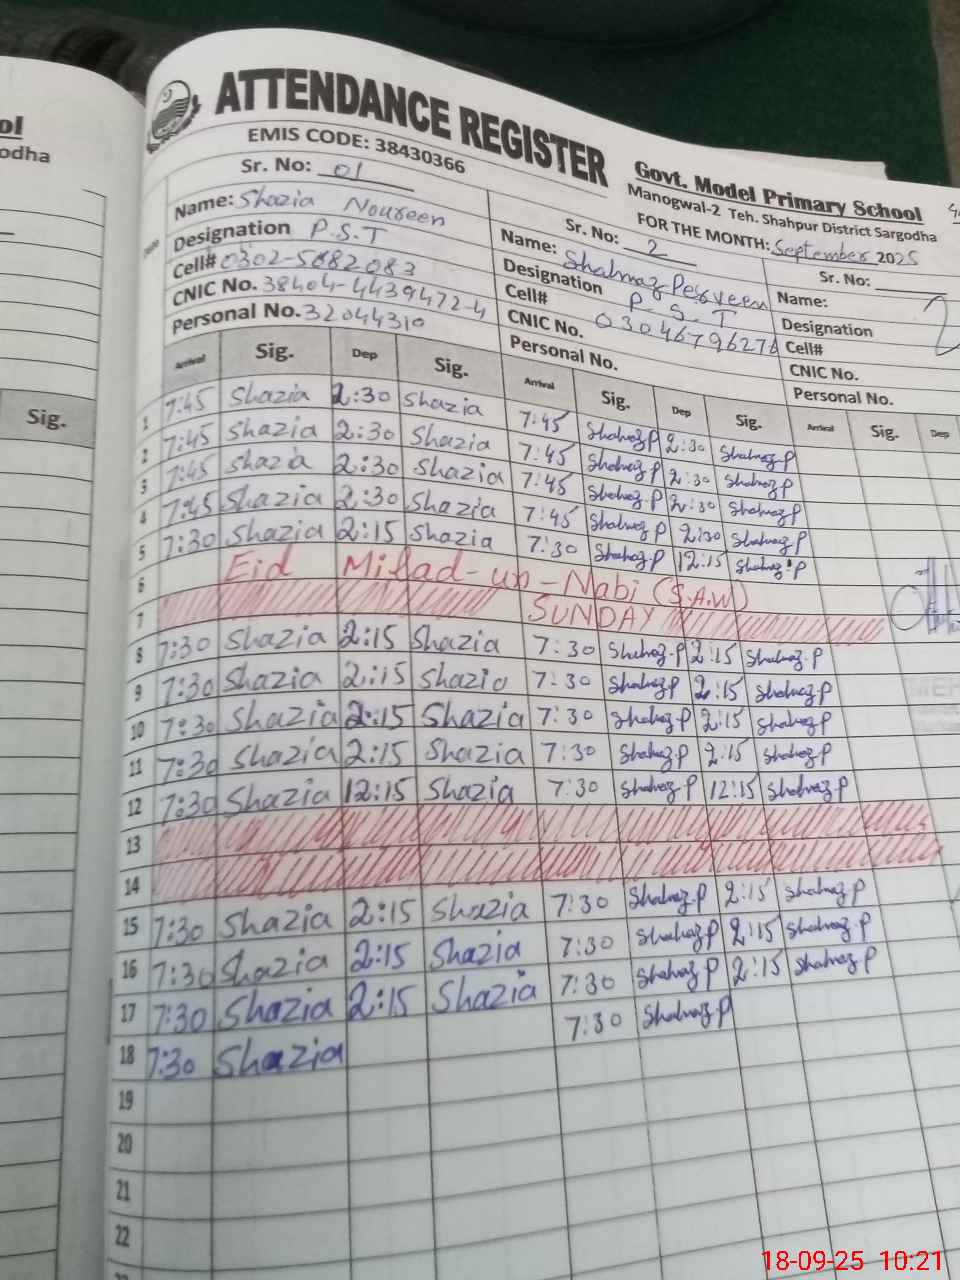 ol
odha
Sig.
ATTENDANCE REGISTER
EMIS CODE: 38430366
Govt. Model Primary School
Manogwal-2 Teh. Shahpur District Sargodha
FOR THE MONTH: September 2025
Sr. No: 01
Name: Shazia Noureen
Designation P.S.T
Cell# 0302-5682083
CNIC No. 38404-4439472-4
Personal No. 32044310
Sr. No: 2
Name: Shahnaz Perveen
Designation P.S.T
Cell# 03046796276
CNIC No.
Personal No.
Sr. No:
Name:
Designation
Cell#
CNIC No.
Personal No.
Arrival Sig. Dep Sig. Arrival Sig. Dep Sig. Arrival Sig. Dep
1 7:45 Shazia 2:30 Shazia 7:45 Shahnaz P 2:30 Shahnaz P
2 7:45 Shazia 2:30 Shazia 7:45 Shahnaz P 2:30 Shahnaz P
3 7:45 Shazia 2:30 Shazia 7:45 Shahnaz P 2:30 Shahnaz P
4 7:45 Shazia 2:30 Shazia 7:45 Shahnaz P 2:30 Shahnaz P
5 7:30 Shazia 2:15 Shazia 7:30 Shahnaz P 12:15 Shahnaz P
6 Eid Milad-un-Nabi (S.A.W)
7 SUNDAY
8 7:30 Shazia 2:15 Shazia 7:30 Shahnaz P 2:15 Shahnaz P
9 7:30 Shazia 2:15 Shazia 7:30 Shahnaz P 2:15 Shahnaz P
10 7:30 Shazia 2:15 Shazia 7:30 Shahnaz P 2:15 Shahnaz P
11 7:30 Shazia 2:15 Shazia 7:30 Shahnaz P 2:15 Shahnaz P
12 7:30 Shazia 12:15 Shazia 7:30 Shahnaz P 12:15 Shahnaz P
13
14
15 7:30 Shazia 2:15 Shazia 7:30 Shahnaz P 2:15 Shahnaz P
16 7:30 Shazia 2:15 Shazia 7:30 Shahnaz P 2:15 Shahnaz P
17 7:30 Shazia 2:15 Shazia 7:30 Shahnaz P 2:15 Shahnaz P
18 7:30 Shazia 7:30 Shahnaz P
19
20
21
22
18-09-25 10:21